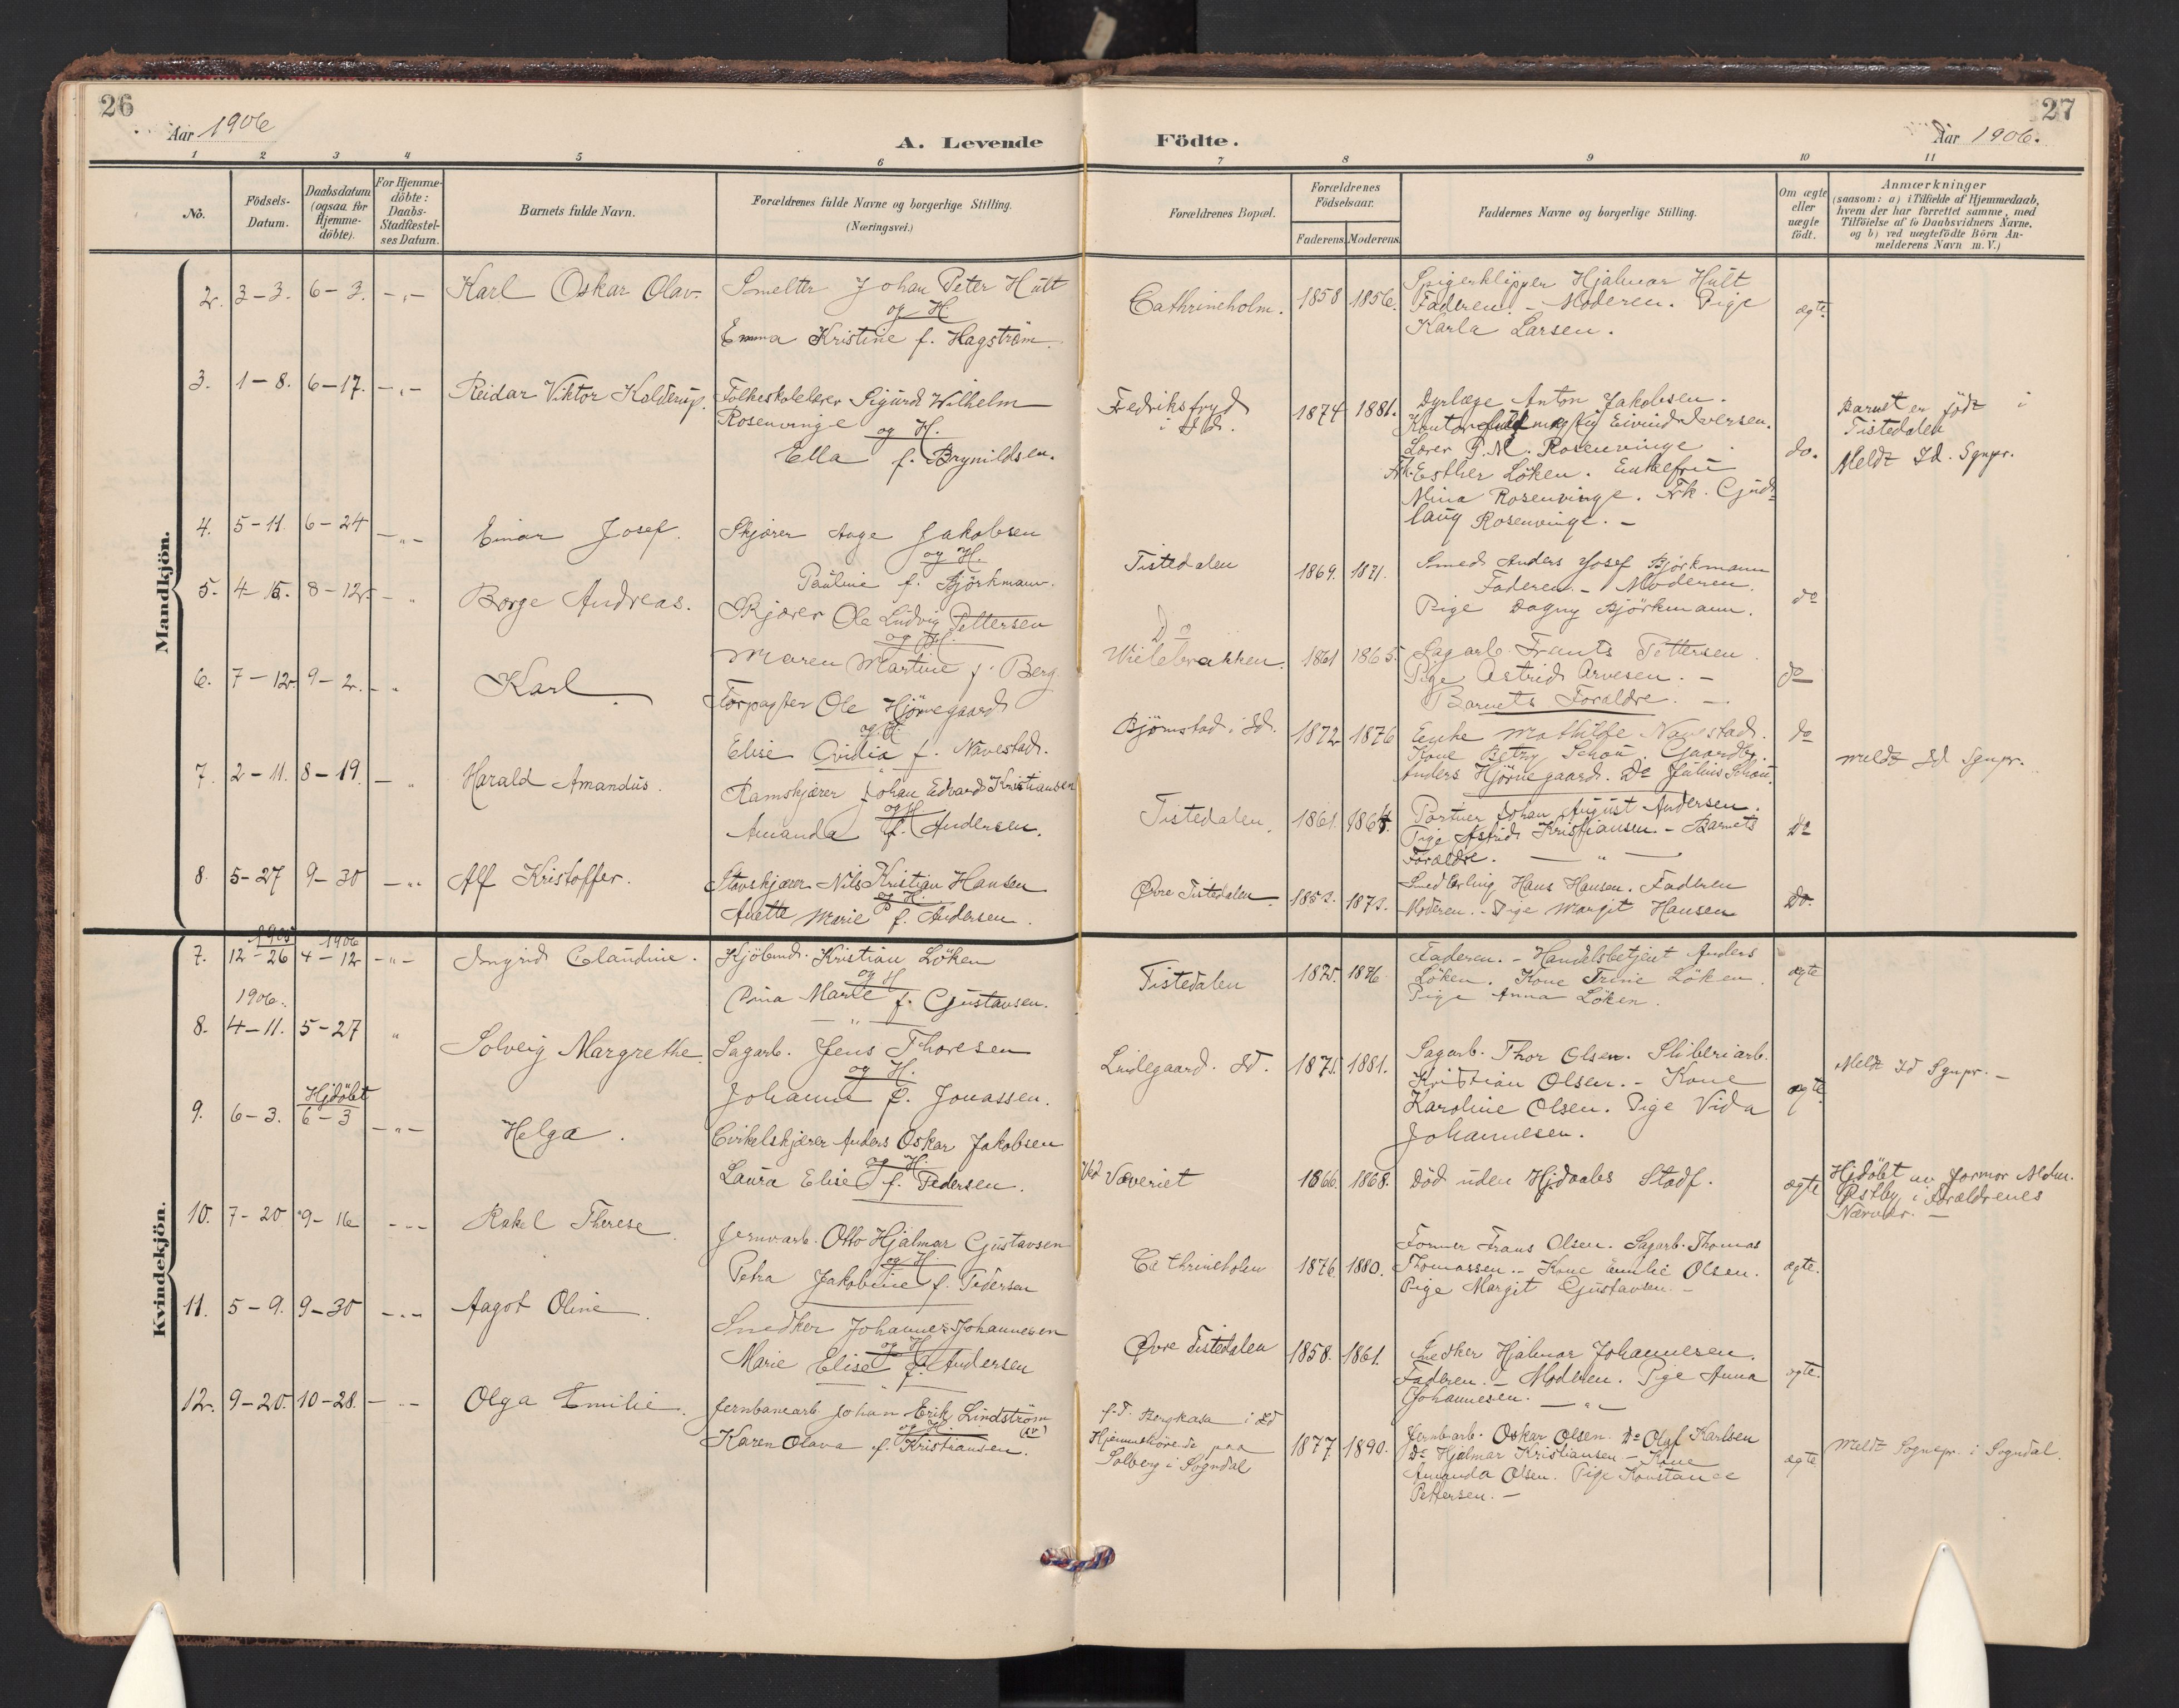 26
Aar 1906
A. Levende
Födte.
27
Aar 1906.
1 2 3 4 5 6 7 8 9 10 11
No.
Födsels-
Datum.
Daabsdatum
(ogsaa for
Hjemme-
döbte).
For Hjemme-
döbte:
Daabs-
Stadfæstel-
ses Datum.
Barnets fulde Navn.
Forældrenes fulde Navne og borgerlige Stilling.
(Næringsvei.)
Forældrenes Bopæl.
Forældrenes
Födselsaar.
Faderens. Moderens.
Faddernes Navne og borgerlige Stilling.
Om ægte
eller
uægte
födt.
Anmærkninger
(saasom: a) i Tilfælde af Hjemmedaab,
hvem der har forrettet samme, med
Tilföielse af to Daabsvidners Navne,
og b) ved uægtefödte Börn An-
melderens Navn m. V.)
Mandkjön.
2. 3-3. 6-3. -„- Karl Oskar Olav.
Smelter Johan Peter Hult
og H
Emma Kristine f. Hagström.
Cathrineholm. 1858 1856.
Spigerklipper Hjalmar Hult
Faderen. - Moderen. Pige
Karla Larsen.
ægte.
3. 1-8. 6-17. -„- Reidar Viktor Kolderup.
Folkeskolelærer Sigurd Wilhelm
Rosenvinge
og H.
Ella f. Brynildsen.
Fredriksfryd
i Id. 1874 1881.
Dyrlæge Anton Jakobsen.
Eivind Iversen.
Lærer P. M. Rosenvinge.
Frk. Esther Löken. Enkefru
Mina Rosenvinge. Frk. Gud-
laug Rosenvinge. -
do.
Barnet er födt i
Tistedalen
Meldt Id. Sgnpr.
4. 5-11. 6-24 -„- Einar Josef.
Skjærer Aage Jakobsen
og H.
Pauline f. Björkmann.
Tistedalen 1869. 1871.
Smed Anders Josef Björkmann
Faderen. - Moderen.
Pige Dagny Björkmann.
do
5. 4-15. 8-12. -„ Borge Andreas.
Skjærer Ole Ludvig Pettersen
og H.
Maren Martine f. Berg
Do
Wielebrakken. 1861 1865.
Sagarb. Frants Pettersen.
Pige Astrid Arvesen. -
Barnets Forældre. -
do
6. 7-12. 9-2. -„ Karl.
Forpagter Ole Hjörnegaard
og H
Elise Ovidia f. Navestad.
Björnstad i Id. 1872 1876
Enke Mathilde Navestad.
Kone Betzy Schou. Gaardbr.
Anders Hjörnegaard. Do Julius Schou.
do
meldt Id Sgnpr.
7. 2-11. 8-19. -„ Harald Amandus.
Ramskjærer Johan Edvard Kristiansen
og H
Amanda f. Andersen.
Tistedalen. 1861. 1864.
Portner Johan August Andersen.
Pige Astrid Kristiansen - Barnets
Forældre. - „ -
do
8. 5-27 9-30 -„- Alf Kristoffer.
Stavskjærer Nils Kristian Hansen
og H.
Anette Marie f. Andersen.
Øvre Tistedalen. 1853. 1873.
Smedlærling Hans Hansen. Faderen
Moderen. - Pige Margit Hansen
Do.
Kvindekjön.
1905 1906
7. 12-26 4-12 -„- Ingrid Claudine.
Kjöbmd. Kristian Löken
og H
Anna Marie f. Gustavsen.
Tistedalen 1875. 1876.
Faderen. - Handelsbetjent Anders
Löken. Kone Trine Löken.
Pige Anna Löken.
ægte
1906.
8. 4-11. 5-27 „ Solveig Margrethe.
Sagarb. Jens Thoresen
og H.
Johanne f. Jonassen.
Lindegaard. Id. 1875. 1881.
Sagarb. Thor Olsen. Sliberiarb.
Kristian Olsen. - Kone
Karoline Olsen. Pige Vida
Johannesen.
ægte.
Meldt Id Sgnpr. -
Hjdöbt
9. 6-3. 6-3 -„- Helga.
Cirkelskjærer Anders Oskar Jakobsen
og H.
Laura Elise f. Pedersen.
Ved Væveriet 1866. 1868.
Död uden Hjdaabs Stadf.
ægte
Hjdöbt av Jormor
Østby i Forældrenes
Nærvær. -
10. 7-20 9-16 -„- Rakel Therese.
Jernvarb. Otto Hjalmar Gustavsen
og H.
Petra Jakobine f. Pedersen
Cathrineholm 1876 1880.
Former Frans Olsen. Sagarb. Thomas
Thomassen. - Kone Emilie Olsen.
Pige Margit Gustavsen. -
ægte.
11. 5-9. 9-30 -„- Aagot Oline.
Snedker Johannes Johannesen
og H
Marie Elise f. Andersen
Øvre Tistedalen 1858. 1861.
Snedker Hjalmar Johannesen.
Faderen. - Moderen. Pige Anna
Johannesen. -„-
ægte.
12. 9-20. 10-28. -„- Olga Emilie.
Jernbanearb. Johan Erik Lindström
og H.
Karen Olava f. Kristiansen.
f.T. Bergkasa i Id
Hjemmehörende paa
Solberg i Sogndal
1877 1890.
Jernbarb. Oskar Olsen. Do Olaf Karlsen
Do Hjalmar Kristiansen - Kone
Amanda Olsen. Pige Konstance
Pettersen. -
ægte
Meldt Sognepr. i Sogndal.